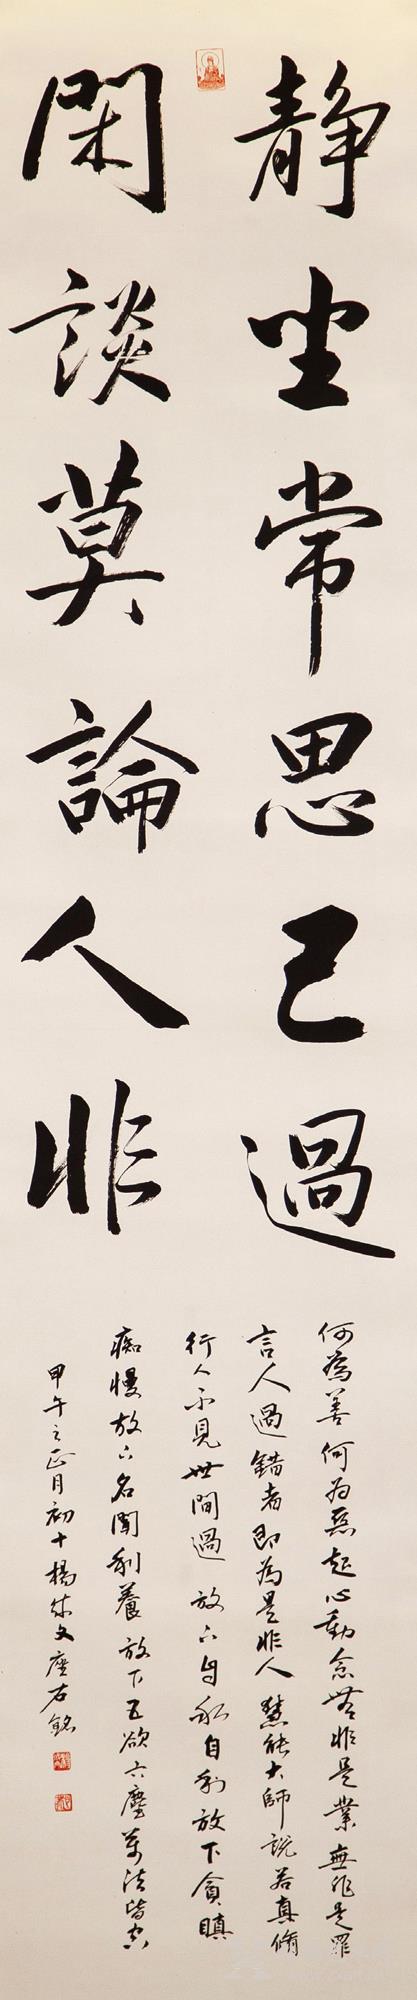 静坐常思己過
閑談莫論人非
何為善何為惡起心動念無非是業無非是罪
言人過錯者即為是非人慧能大師說若真脩
行人不見世間過放下自私自利放下貪瞋
痴慢放下名聞利養放下五欲六塵萬法皆空
甲午之正月初十楊 文座右銘